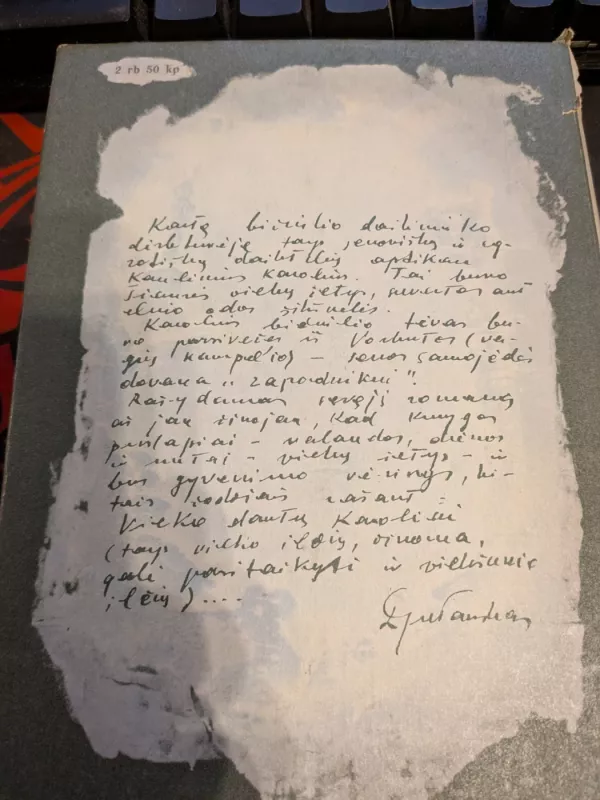 2 rb 50 kp
Kartą bičiulio dailininko
dirbtuvėje tarp senoviškų ir eg-
zotiškų daiktelių aptikau
Kaulinius karolius. Tai buvo
šiaurės vilkų iltys, suvertos ant
elnio odos žiūrelės.
Karolius bičiulio tėvas bu-
vo parsivežęs iš Vorkutos (ver-
gijų kampelio) – senos samojedės
dovana "zapadnikui".
Rašydamas šį romaną
aš jau žinojau, kad knygos
puslapiai – valandos, dienos
ir metai – vilkų iltys – ir
bus gyvenimo vėrinys, ki-
tais žodžiais tariant:
Vilko dantų karoliai
(tarp vilko ilčių, žinoma,
gali pasitaikyti ir viena kita
ilčių)....